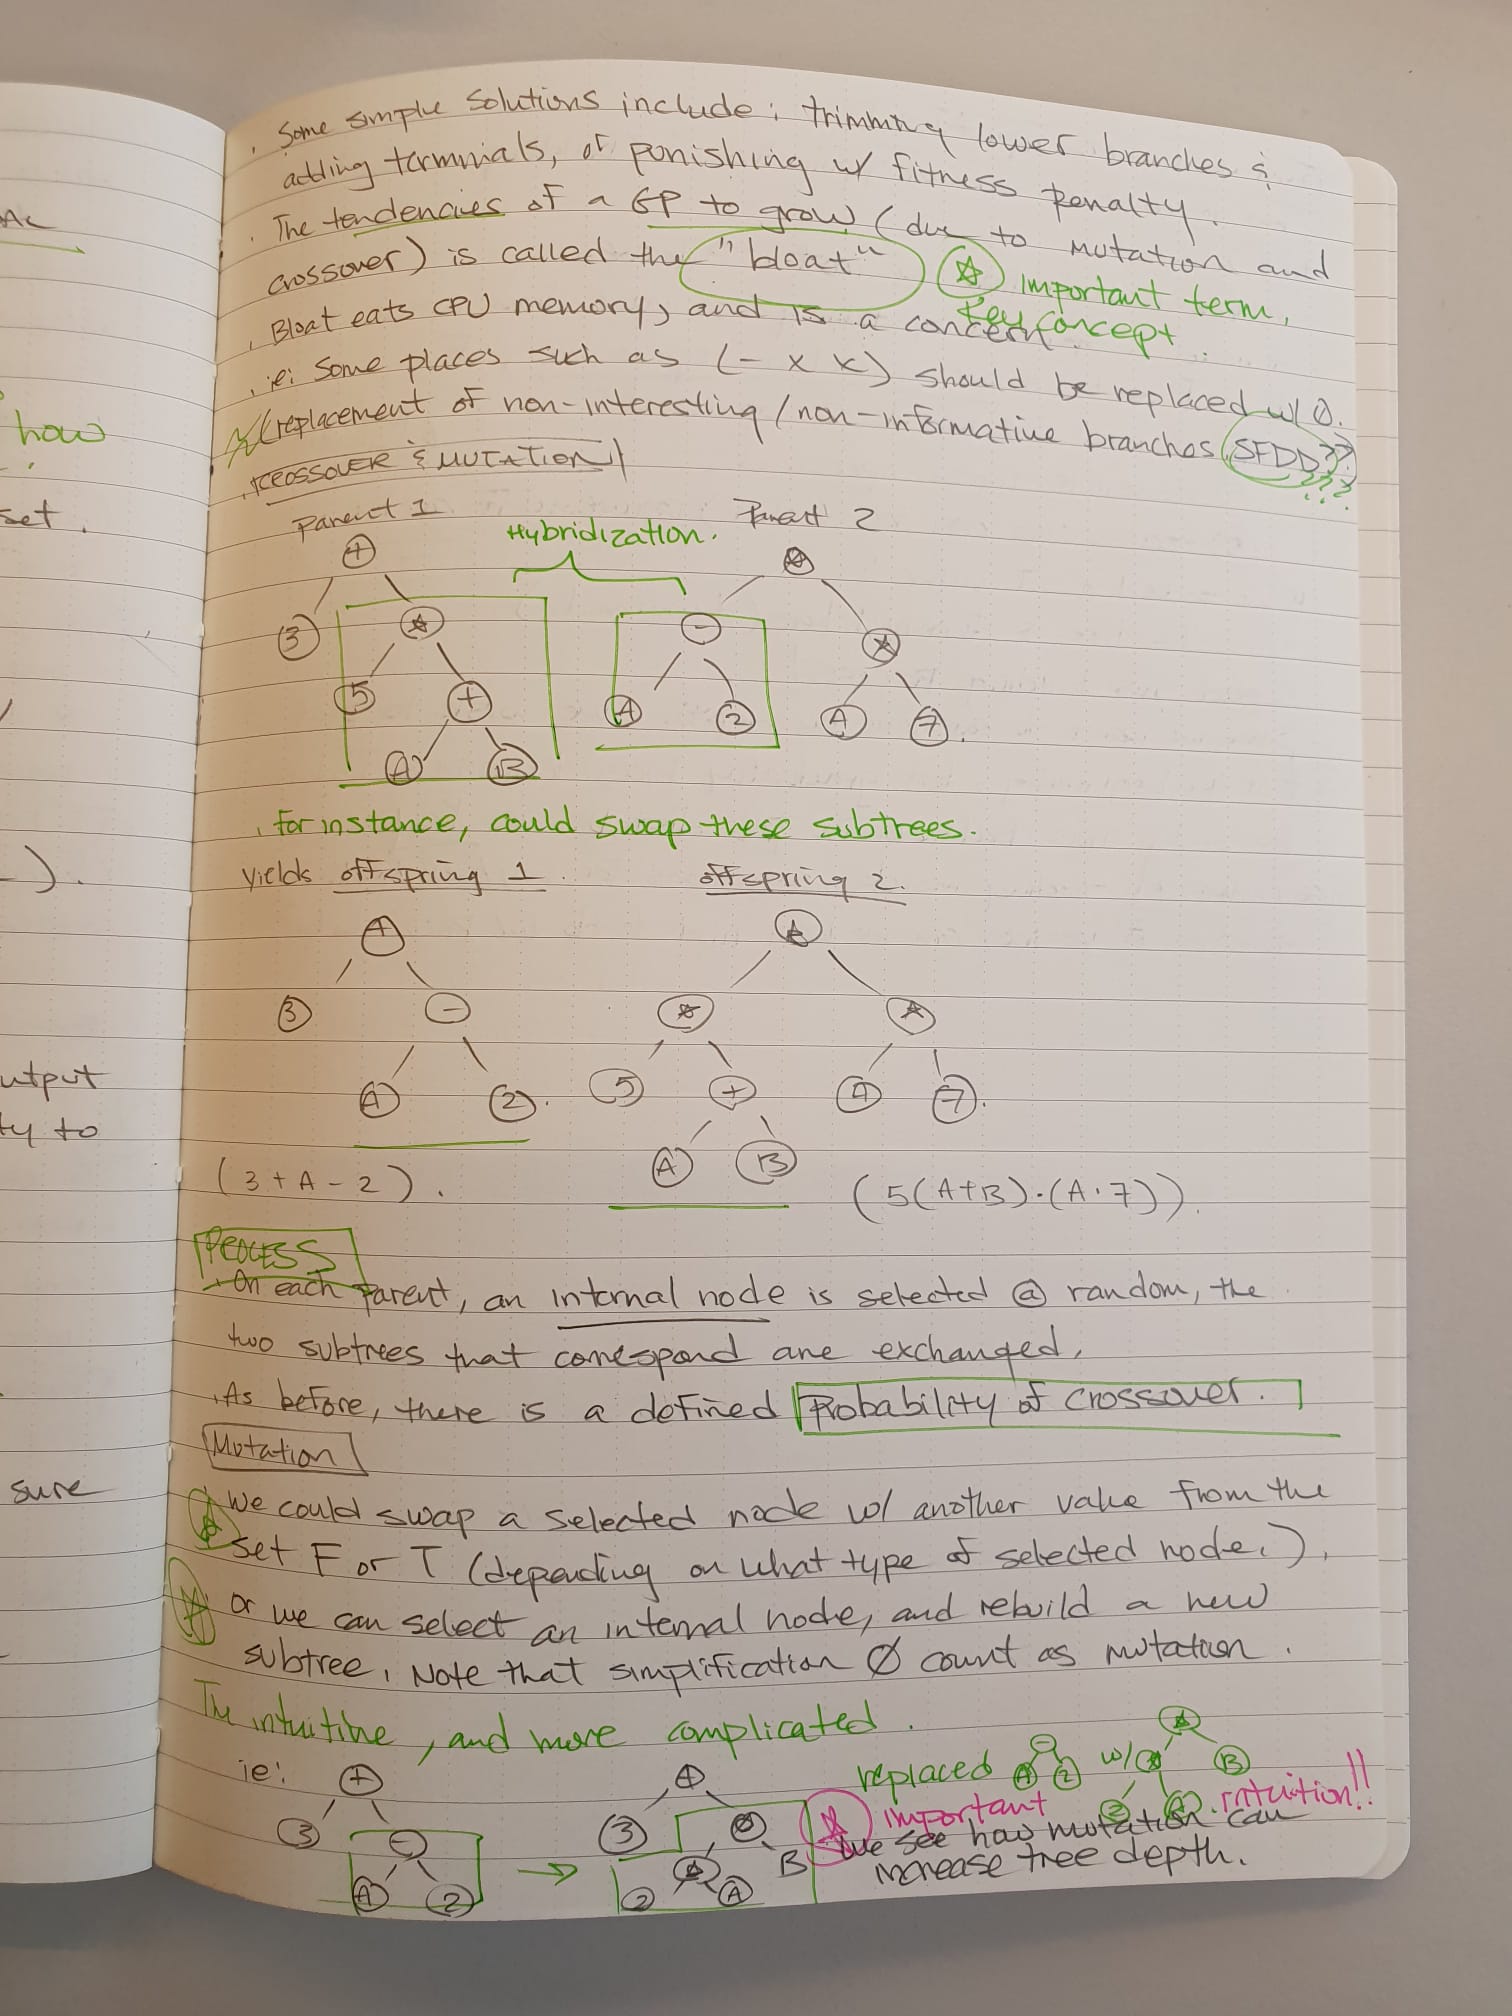 . Some simple solutions include: trimming lower branches &
adding terminals, or punishing w/ fitness penalty.
. The tendencies of a GP to grow (due to mutation and
crossover) is called the "bloat" Important term,
Key Concept.
. Bloat eats CPU memory, and is a concern.
. ie: Some places such as (- x x) should be replaced w/ 0.
(replacement of non-interesting / non-informative branches. SFDD??
???
. CROSSOVER & MUTATION
Parent 1 Hybridization. Parent 2
+
3 * - *
5 + A 2 A 7.
A B
. For instance, could swap these subtrees.
Yields offspring 1. offspring 2.
+ *
3 - * *
A 2. 5 + A 7.
A B
(3 + A - 2). (5(A+B)·(A·7)).
PROCESS
. On each parent, an internal node is selected @ random, the
two subtrees that correspond are exchanged.
. As before, there is a defined Probability of crossover.
Mutation
We could swap a selected node w/ another value from the
set F or T (depending on what type of selected node.).
or we can select an internal node, and rebuild a new
subtree. Note that simplification Ø count as mutation.
The intuitive, and more complicated.
ie: + + replaced - A 2 w/ * B
3 - 3 important 2 A. intuition!!
A 2 2 A B We see how mutation can
increase tree depth.
Ac
how
set.
).
utput
ty to
sure